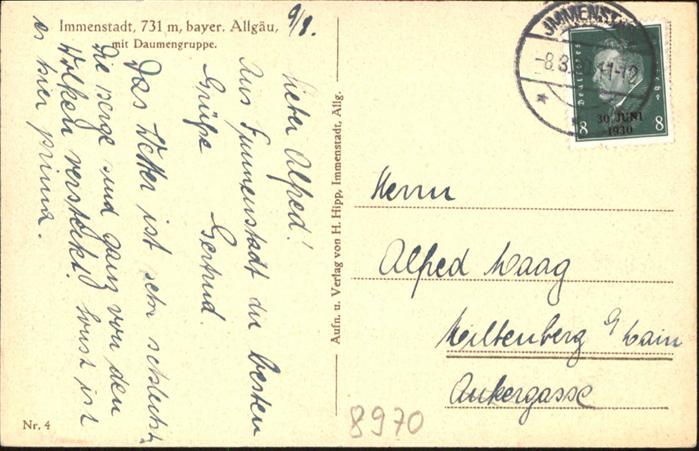 Immenstadt, 731 m, bayer. Allgäu,
mit Daumengruppe.
9/8.
Lieber Alfred!
Aus Immenstadt die besten
Grüße Gertrud.
Das Wetter ist sehr schlecht,
die Berge sind ganz von den
Wolken versteckt. Sonst ist
es hier prima.
Nr. 4
Aufn. u. Verlag von H. Hipp, Immenstadt, Allg.
IMMENSTADT
-8.8. 11-12
Deutsches Reich
30. JUNI
1930
8 8
Herrn
Alfred Waag
Miltenberg a/Main
Ankergasse
8970